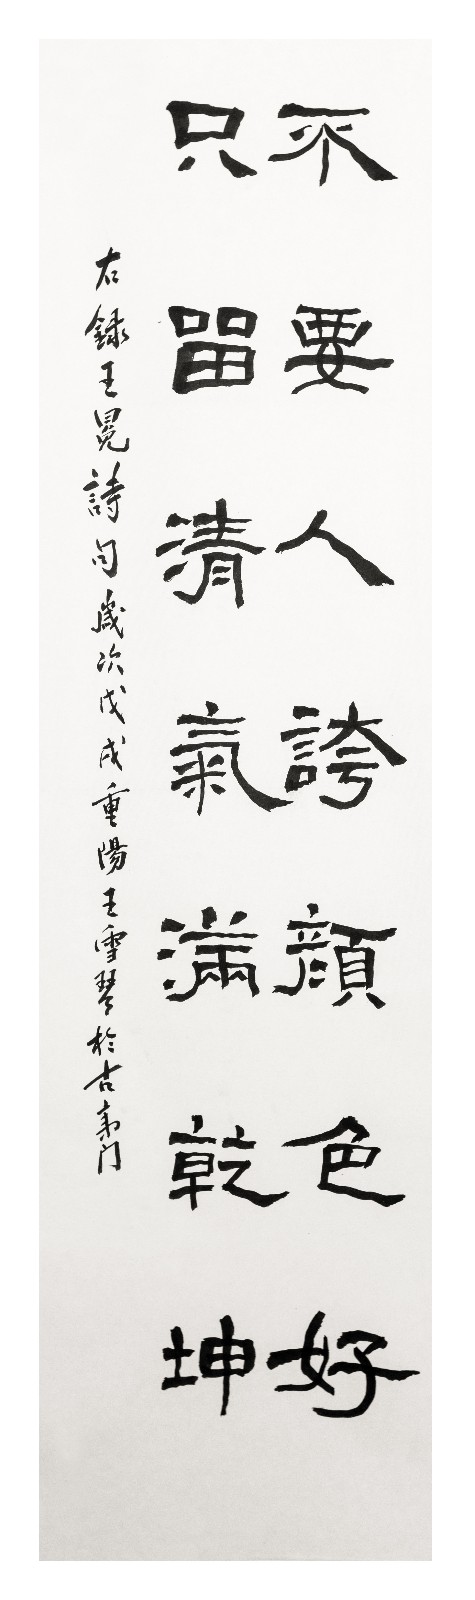 不要人誇顏色好
只留清氣滿乾坤
右錄王冕詩句歲次戊戌重陽王雪琴於古彭门